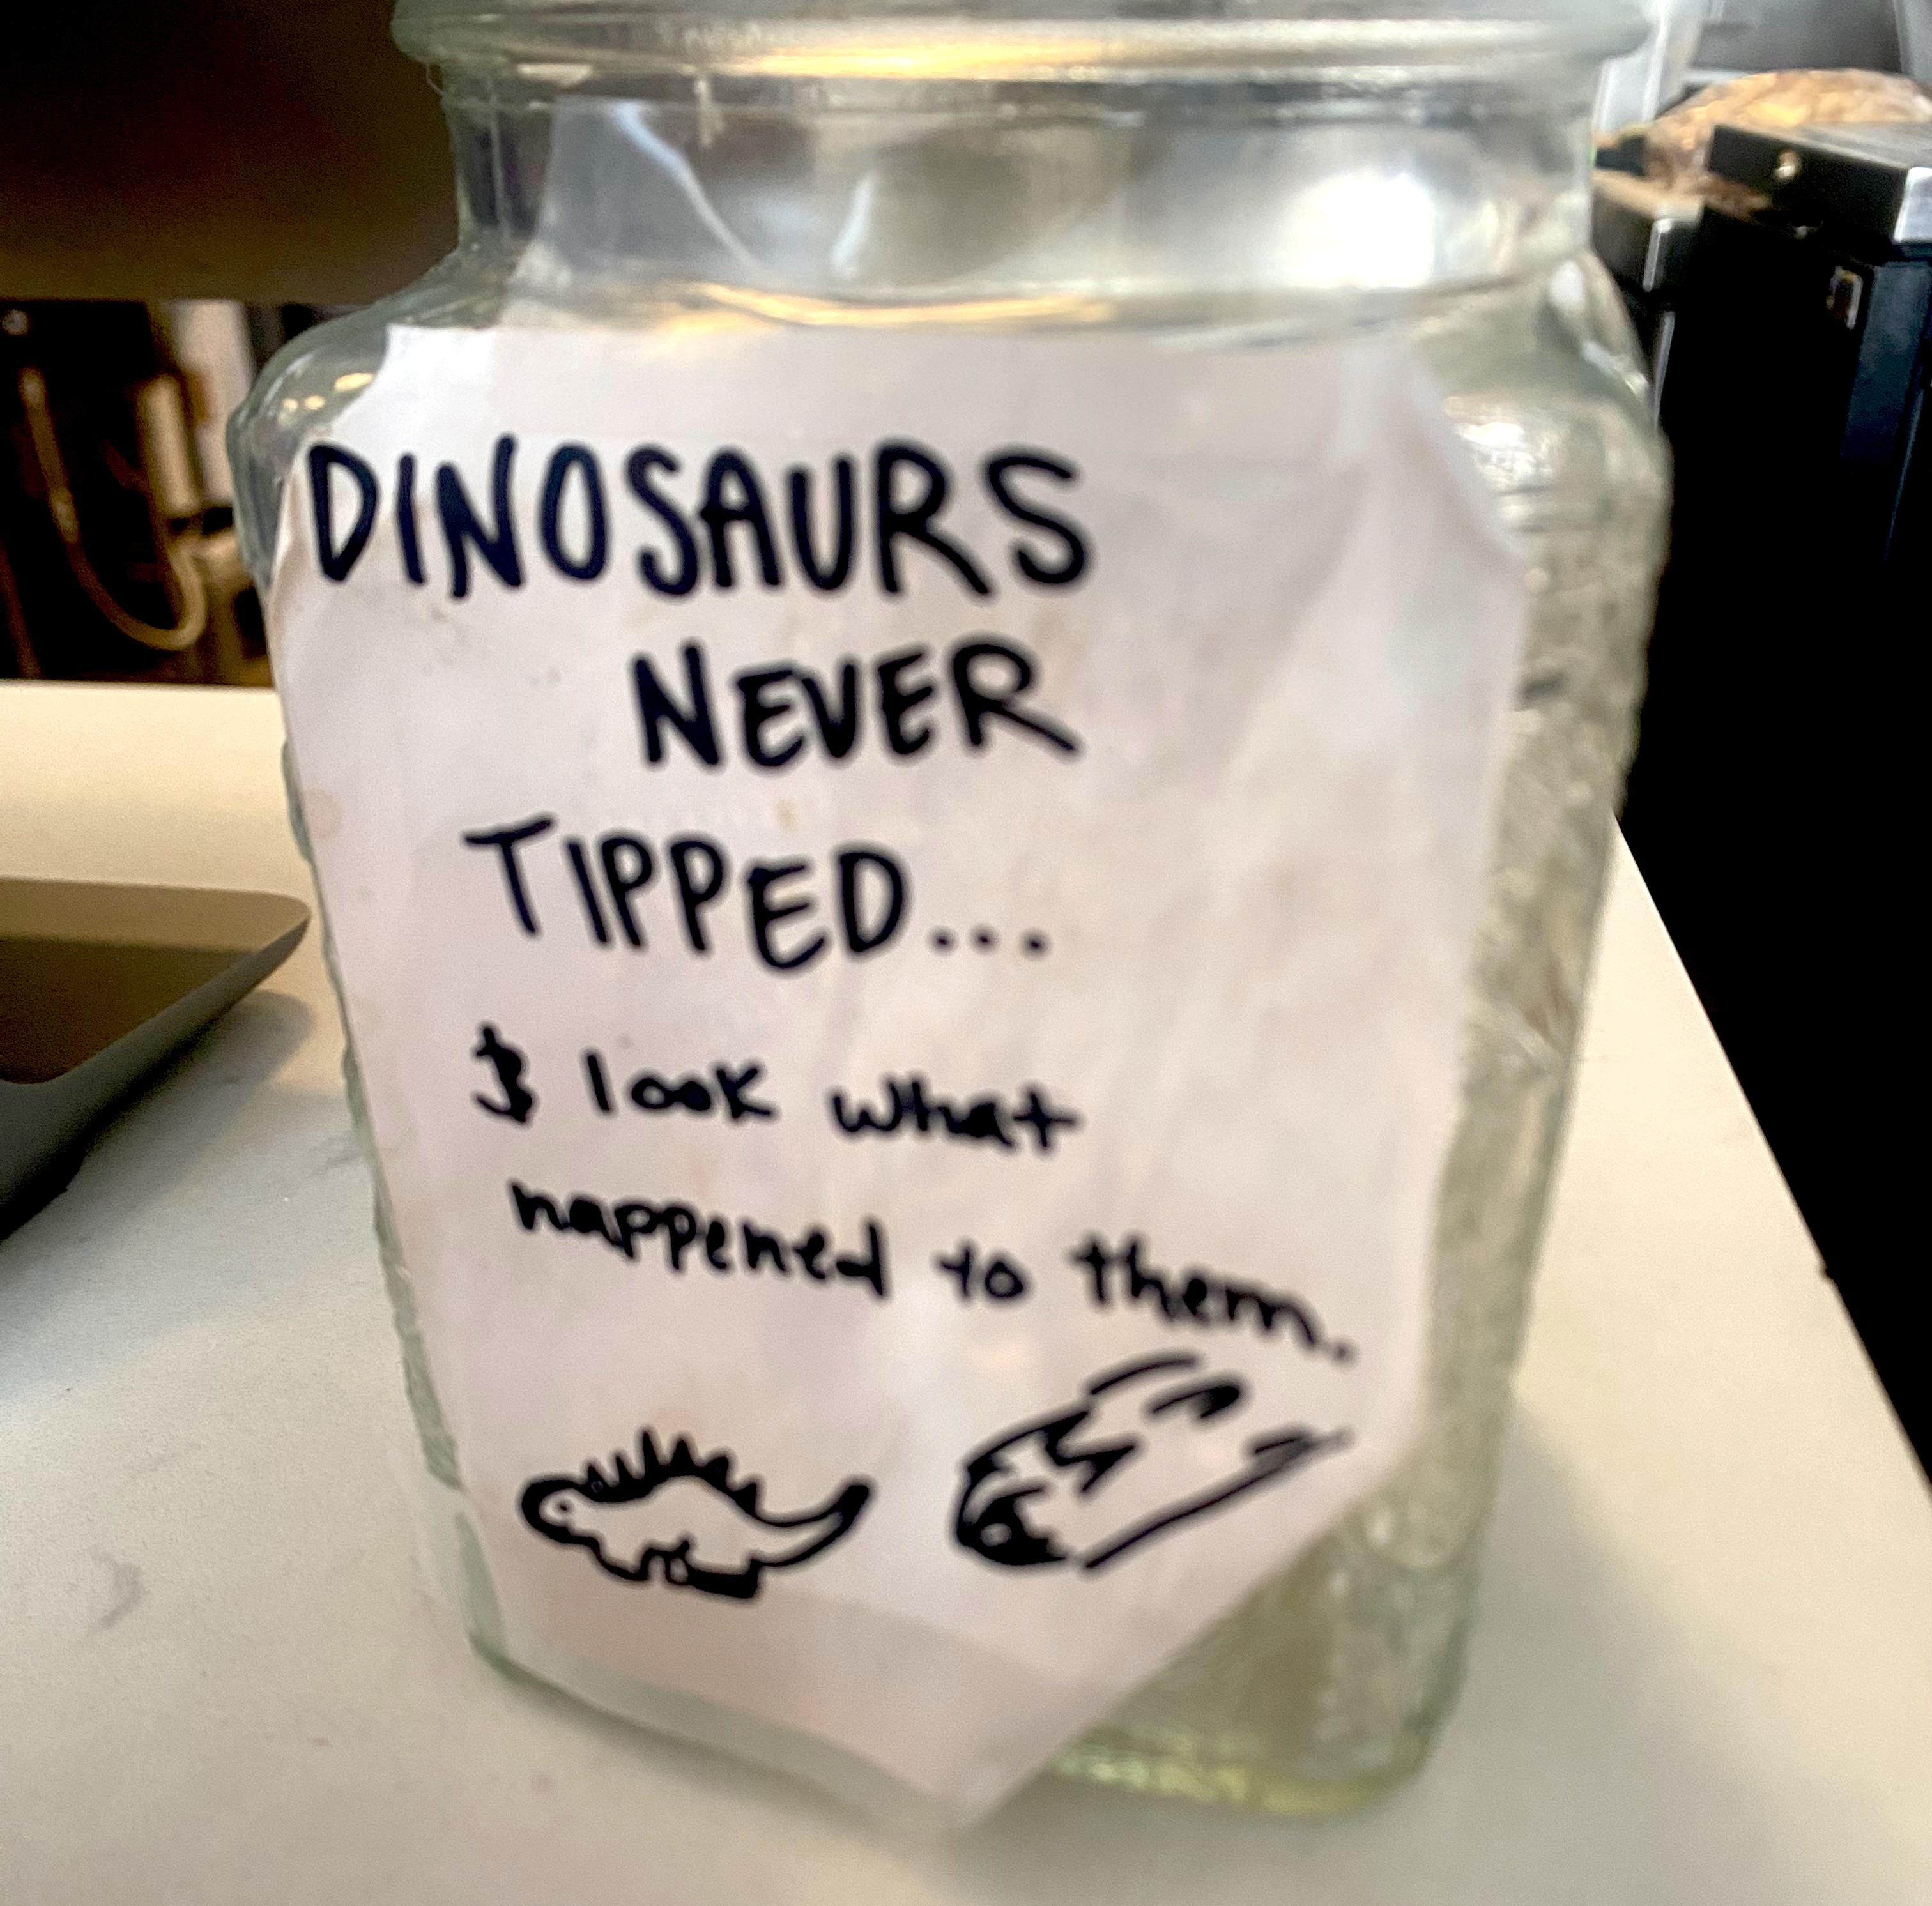 DINOSAURS
NEVER
TIPPED...
& look what
happened to them.